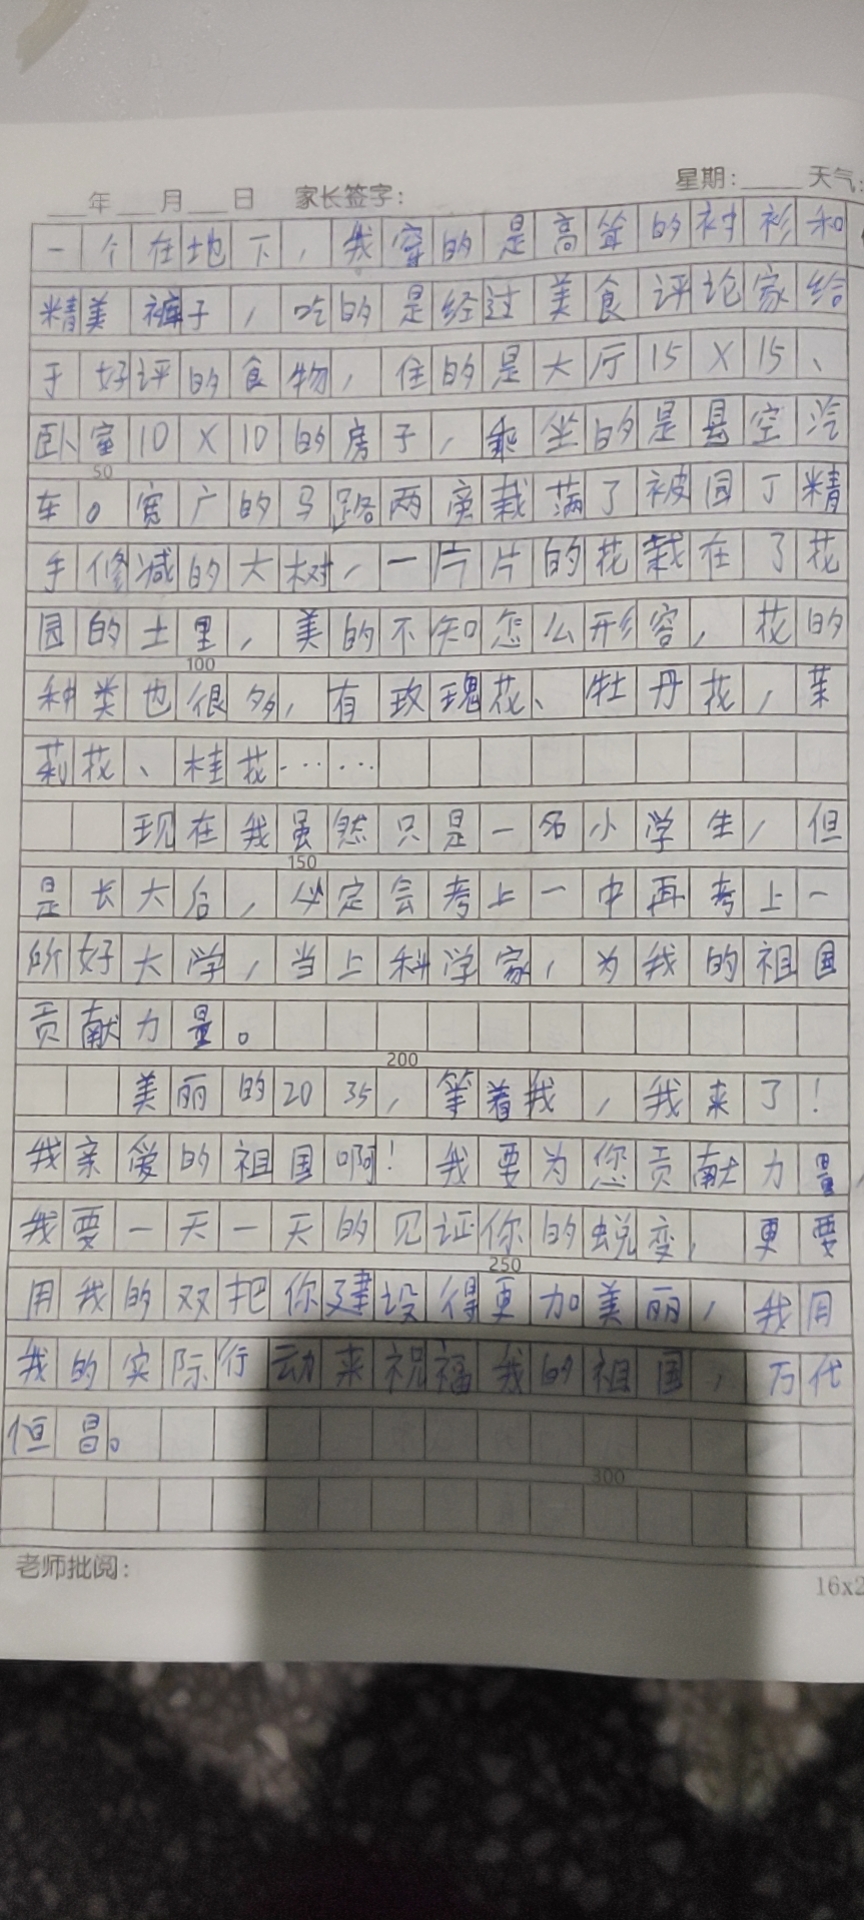 ___年___月___日 家长签字: 星期:____天气:
一个在地下，我穿的是高耸的衬衫和
精美裤子，吃的是经过美食评论家给
于好评的食物，住的是大厅15X15、
卧室10X10的房子，乘坐的是悬空汽
车。宽广的马路两旁栽满了被园丁精
手修减的大树，一片片的花栽在了花
园的土里，美的不知怎么形容，花的
50
100
种类也很多，有玫瑰花、牡丹花，茉
莉花、桂花……
现在我虽然只是一名小学生，但
150
是长大后，必定会考上一中再考上一
所好大学，当上科学家，为我的祖国
贡献力量。
200
美丽的2035，等着我，我来了！
我亲爱的祖国啊！我要为您贡献力量
我要一天一天的见证你的蜕变，更要
250
用我的双把你建设得更加美丽，我用
我的实际行动来祝福我的祖国，万代
恒昌。
300
老师批阅:
16x2